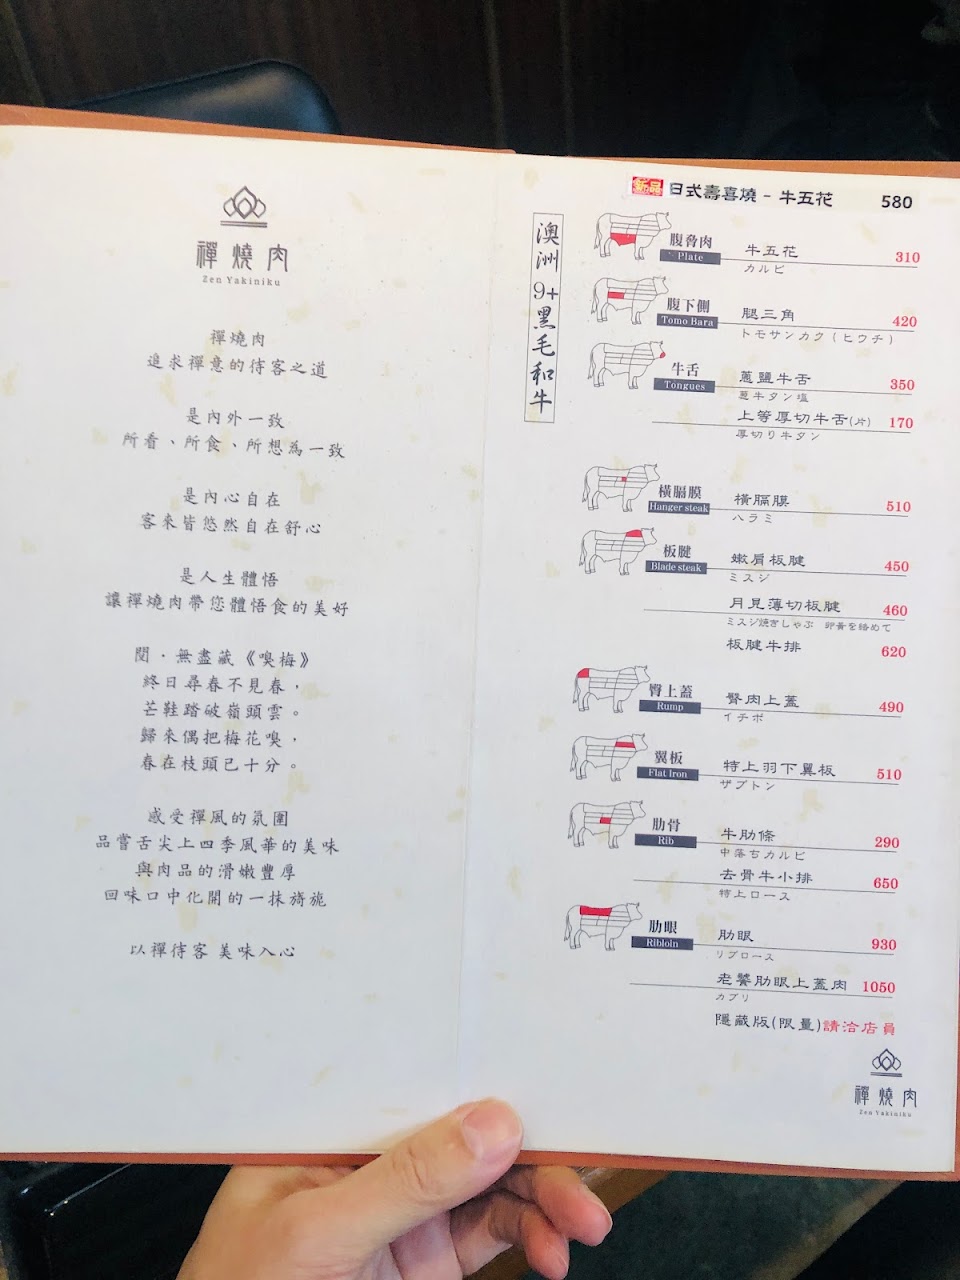 禪燒肉
Zen Yakiniku
禪燒肉
追求禪意的待客之道
是內外一致
所看、所食、所想為一致
是內心自在
客來皆悠然自在舒心
是人生體悟
讓禪燒肉帶您體悟食的美好
閱·無盡藏《嗅梅》
終日尋春不見春，
芒鞋踏破嶺頭雲。
歸來偶把梅花嗅，
春在枝頭已十分。
感受禪風的氛圍
品嘗舌尖上四季風華的美味
與肉品的滑嫩豐厚
回味口中化開的一抹旖旎
以禪待客 美味入心
新品 日式壽喜燒 - 牛五花 580
澳洲9+黑毛和牛
腹脅肉 牛五花 310
Plate カルビ
腹下側 腿三角 420
Tomo Bara トモサンカク（ヒウチ）
牛舌 蔥鹽牛舌 350
Tongues 葱牛タン塩
上等厚切牛舌(片) 170
厚切り牛タン
橫膈膜 橫膈膜 510
Hanger steak ハラミ
板腱 嫩肩板腱 450
Blade steak ミスジ
月見薄切板腱 460
ミスジ焼きしゃぶ 卵黄を絡めて
板腱牛排 620
臀上蓋 臀肉上蓋 490
Rump イチボ
翼板 特上羽下翼板 510
Flat Iron ザブトン
肋骨 牛肋條 290
Rib 中落ちカルビ
去骨牛小排 650
特上ロース
肋眼 肋眼 930
Ribloin リブロース
老饕肋眼上蓋肉 1050
カブリ
隱藏版(限量)請洽店員
禪燒肉
Zen Yakiniku